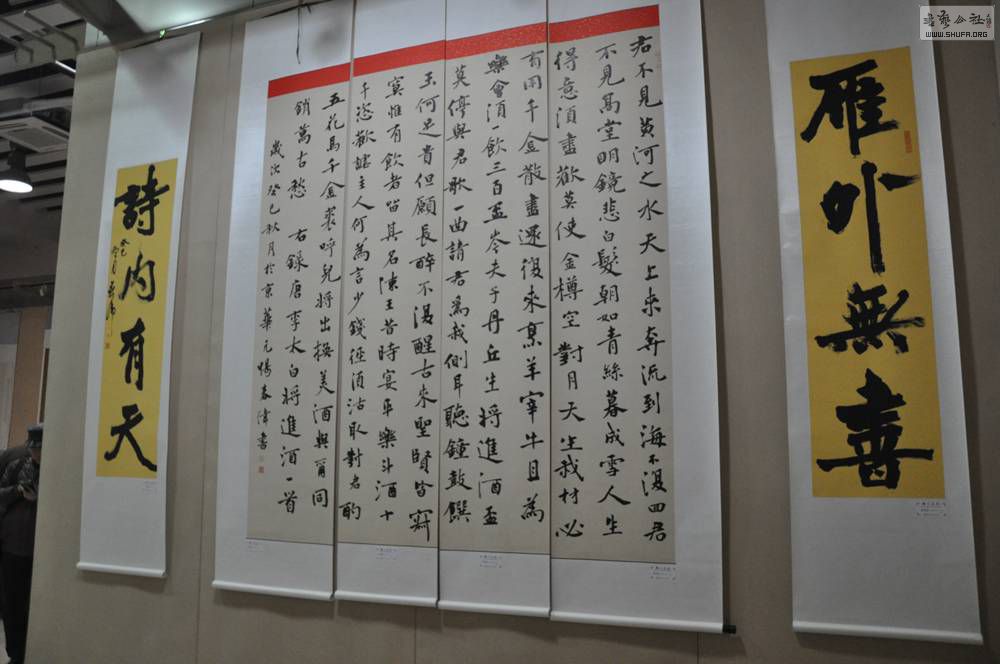 書藝公社
WWW.SHUFA.ORG
雁外無書
君不見黃河之水天上來奔流到海不復回君
不見高堂明鏡悲白髮朝如青絲暮成雪人生
得意須盡歡莫使金樽空對月天生我材必
有用千金散盡還復來烹羊宰牛且為
樂會須一飲三百盃岑夫子丹丘生將進酒盃
莫停與君歌一曲請君為我側耳聽鐘鼓饌
玉何足貴但願長醉不復醒古來聖賢皆寂
寞惟有飲者留其名陳王昔時宴平樂斗酒十
千恣歡謔主人何為言少錢徑須沽取對君酌
五花馬千金裘呼兒將出換美酒與爾同
銷萬古愁 右錄唐李太白將進酒一首
歲次癸巳秋月於京華 楊春 書
詩內有天
癸巳